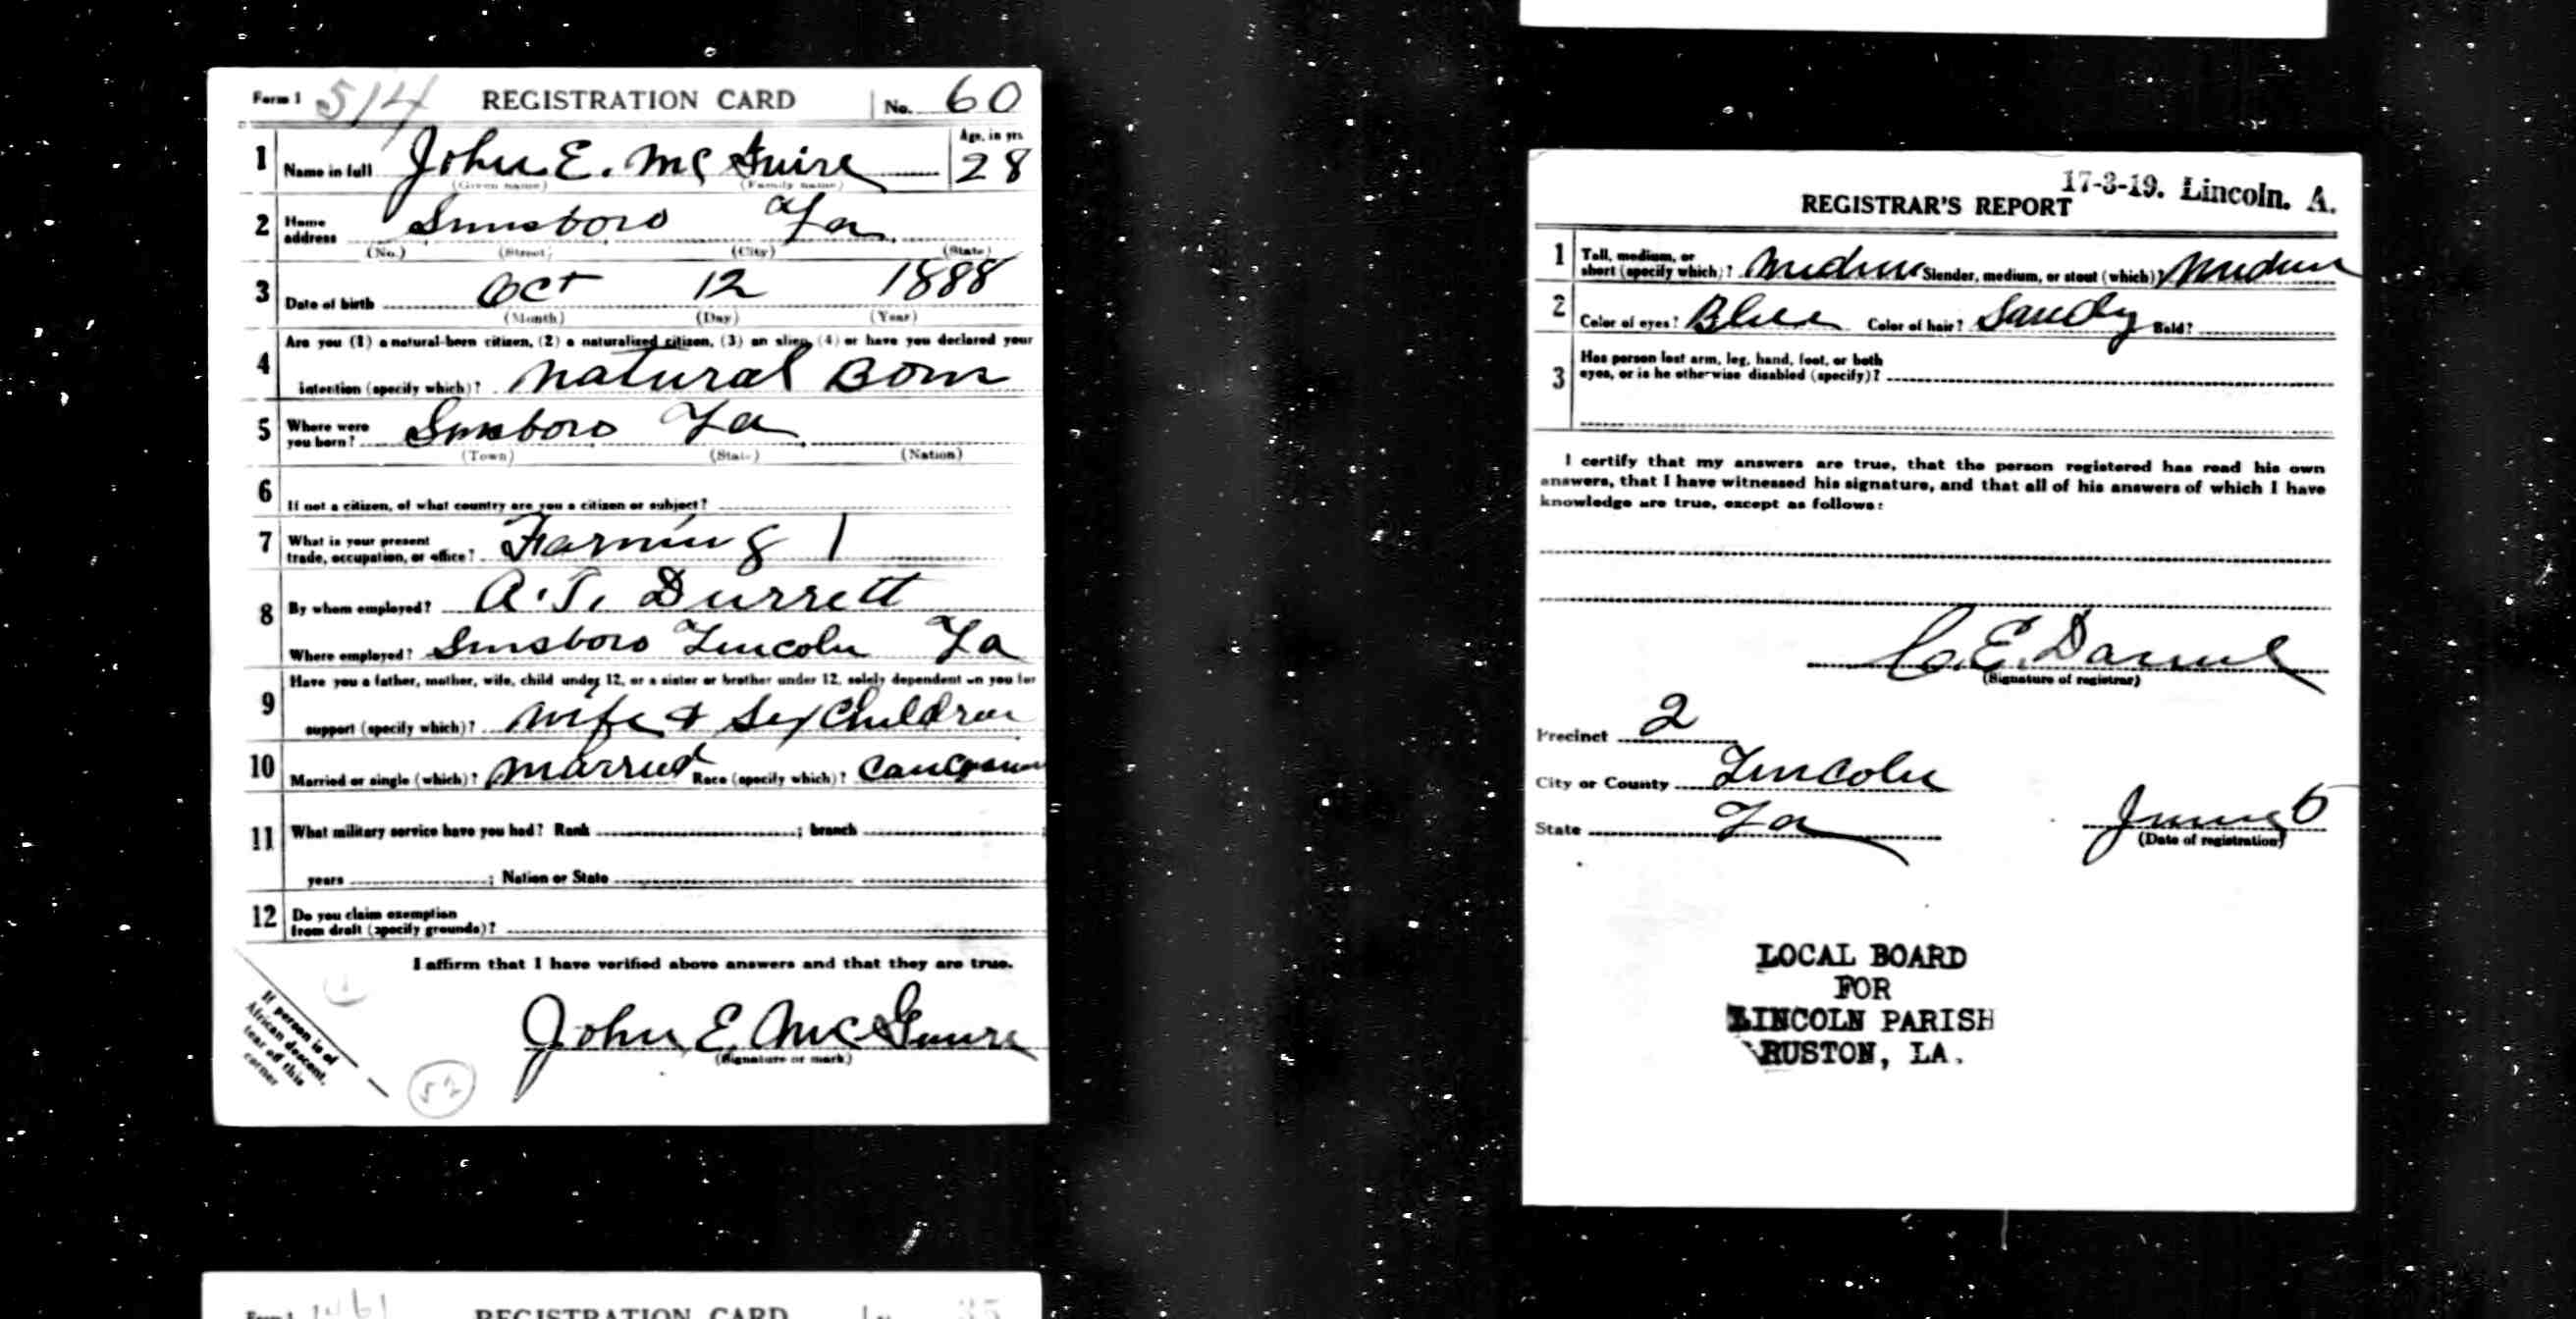 Form 1 514 REGISTRATION CARD No. 60
1 Name in full John E. McGuire Age, in yrs. 28
(Given name) (Family name)
2 Home address Simsboro La
(No.) (Street) (City) (State)
3 Date of birth Oct 12 1888
(Month) (Day) (Year)
4 Are you (1) a natural-born citizen, (2) a naturalized citizen, (3) an alien, (4) or have you declared your
intention (specify which)? Natural Born
5 Where were you born? Simsboro La
(Town) (State) (Nation)
6 If not a citizen, of what country are you a citizen or subject?
7 What is your present
trade, occupation, or office? Farming 1
8 By whom employed? A. T. Durrett
Where employed? Simsboro Lincoln La
9 Have you a father, mother, wife, child under 12, or a sister or brother under 12, solely dependent on you for
support (specify which)? Wife + Six Children
10 Married or single (which)? Married Race (specify which)? Caucasian
11 What military service have you had? Rank ; branch
years ; Nation or State
12 Do you claim exemption
from draft (specify grounds)?
I affirm that I have verified above answers and that they are true.
John E. McGuire
(Signature or mark)
If person is of
African descent,
tear off this
corner
52
Form 1 1461 REGISTRATION CARD 35
17-3-19. Lincoln. A.
REGISTRAR'S REPORT
1 Tall, medium, or
short (specify which)? Medium Slender, medium, or stout (which)? Medium
2 Color of eyes? Blue Color of hair? Sandy Bald?
3 Has person lost arm, leg, hand, foot, or both
eyes, or is he otherwise disabled (specify)?
I certify that my answers are true, that the person registered has read his own
answers, that I have witnessed his signature, and that all of his answers of which I have
knowledge are true, except as follows:
C. E. Daniel
(Signature of registrar)
Precinct 2
City or County Lincoln
State La June 5
(Date of registration)
LOCAL BOARD
FOR
LINCOLN PARISH
RUSTON, LA.